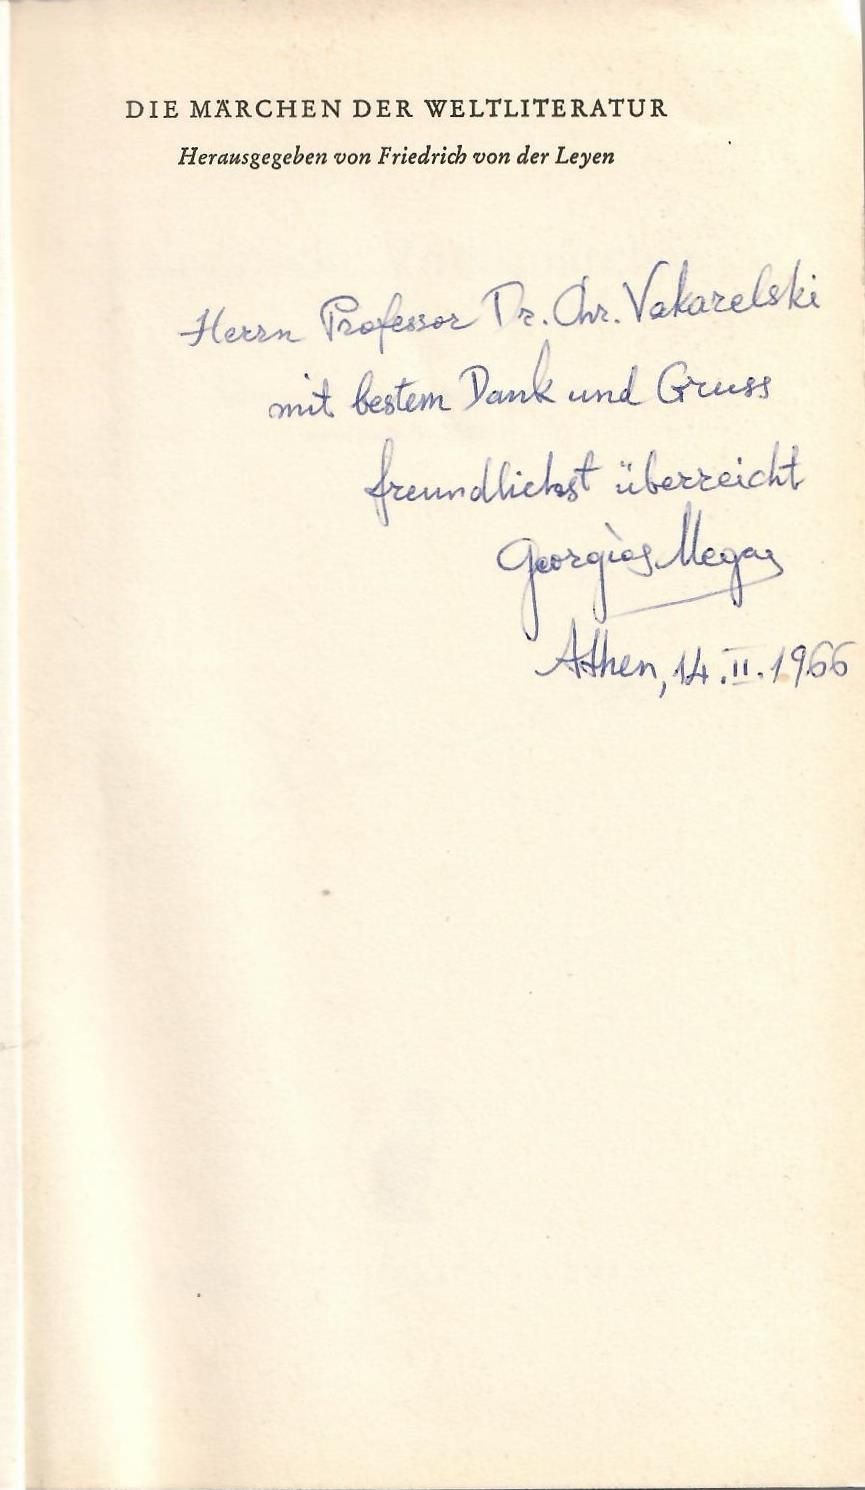 DIE MÄRCHEN DER WELTLITERATUR
Herausgegeben von Friedrich von der Leyen
Herrn Professor Dr. Chr. Vakarelski
mit bestem Dank und Gruss
freundlichst überreicht
Geòrgios Megas
Athen, 14.II.1966